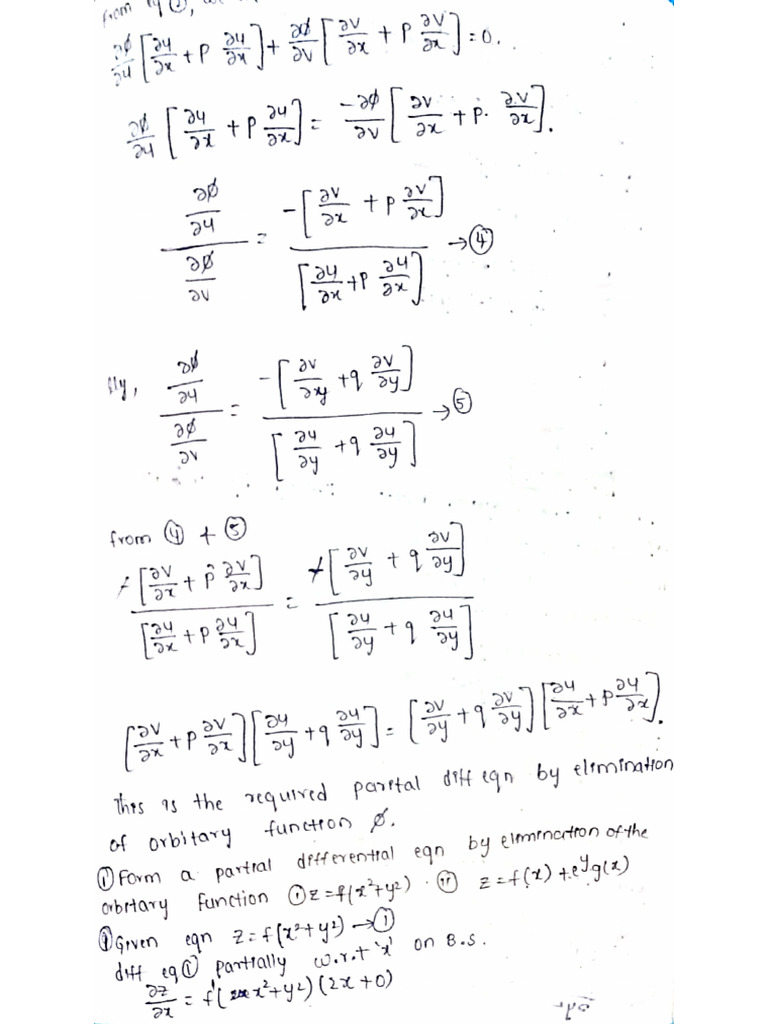 from eq ②,
∂ø/∂u [∂u/∂x + p ∂u/∂x] + ∂ø/∂v [∂v/∂x + p ∂v/∂x] = 0.
∂ø/∂u [∂u/∂x + p ∂u/∂x] = -∂ø/∂v [∂v/∂x + p. ∂v/∂x].
(∂ø/∂u)/(∂ø/∂v) = -[∂v/∂x + p ∂v/∂x]/[∂u/∂x + p ∂u/∂x] → ④
lly, (∂ø/∂u)/(∂ø/∂v) = -[∂v/∂y + q ∂v/∂y]/[∂u/∂y + q ∂u/∂y] → ⑤
from ④ + ⑤
[∂v/∂x + p ∂v/∂x]/[∂u/∂x + p ∂u/∂x] = [∂v/∂y + q ∂v/∂y]/[∂u/∂y + q ∂u/∂y]
[∂v/∂x + p ∂v/∂x] [∂u/∂y + q ∂u/∂y] = [∂v/∂y + q ∂v/∂y] [∂u/∂x + p ∂u/∂x].
This is the required parital diff eqn by elimination
of orbitary function ø.
① Form a partial differential eqn by elimination of the
orbitary function ① z = f(x²+y²). ⑪ z = f(x) + e^y g(x)
① Given eqn z = f(x²+y²) → ①
diff eq ① partially w.r.t 'x' on B.S.
∂z/∂x = f'(x²+y²) (2x+0)